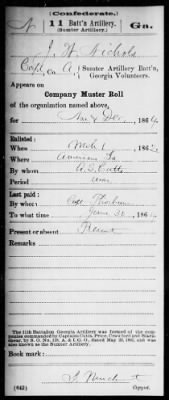 (Confederate.)
N 11 Batt'n Artillery. Ga.
(Sumter Artillery.)
J. W. Nichols
Co. A, Sumter Artillery Batt'n,
Georgia Volunteers.
Appears on
Company Muster Roll
of the organization named above,
for Nov & Dec, 1864.
Enlisted:
When 1, 186
Where Americus Ga
By whom A. S. Cutts
Period War
Last paid:
By whom Capt
To what time June 30, 186
Present or absent Present
Remarks
The 11th Battalion Georgia Artillery was formed of the companies commanded by Captains Cutts, Price, Crawford and Blackshear, by S. O. No.
also known as the Sumter Artillery.
Book mark:
(642)
Copyist.